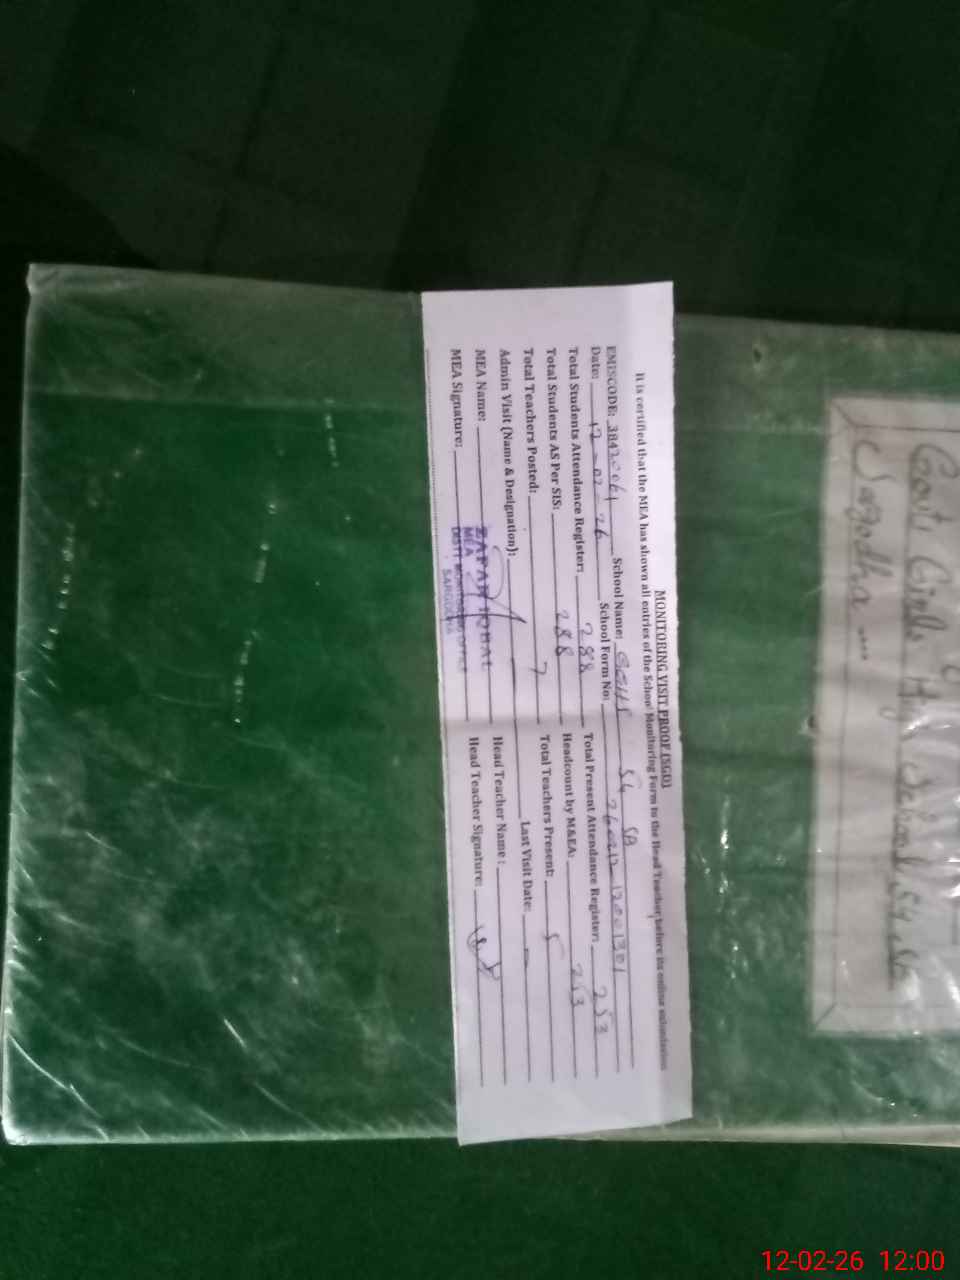 MONITORING VISIT PROOF (SGD)
It is certified that the MEA has shown all entries of the School Monitoring Form to the Head Teacher before its online submission
EMISCODE: 38420061 School Name: GGHS 54 SB
Date: 12-02-26 School Form No: 260212 12001301
Total Students Attendance Register: 288 Total Present Attendance Register: 253
Total Students AS Per SIS: 288 Headcount by M&EA: 253
Total Teachers Posted: 7 Total Teachers Present: 5
Admin Visit (Name & Designation): Last Visit Date: -
MEA Name: ZAFAR IQBAL Head Teacher Name:
MEA Signature: Head Teacher Signature:
MEA
DISTT MONITORING OFFICE
SARGODHA
Govt. Girls High School 54 SB
Sargodha
12-02-26 12:00